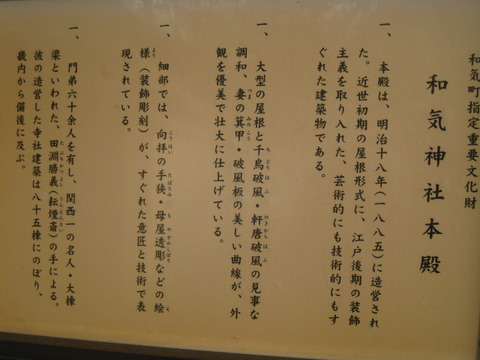 和気町指定重要文化財
和気神社本殿
一、本殿は、明治十八年(一八八五)に造営され
た。近世初期の屋根形式に、江戸後期の装飾
主義を取り入れた、芸術的にも技術的にもす
ぐれた建築物である。
一、大型の屋根と千鳥破風・軒唐破風の見事な
調和、妻の箕甲・破風板の美しい曲線が、外
観を優美で壮大に仕上げている。
一、細部では、向拝の手挟・母屋透彫などの絵
様(装飾彫刻)が、すぐれた意匠と技術で表
現されている。
一、門弟六十余人を有し、関西一の名人・大棟
梁といわれた、田淵勝義(耘煙斎)の手による。
彼の造営した寺社建築は八十五棟にのぼり、
畿内から備後に及ぶ。